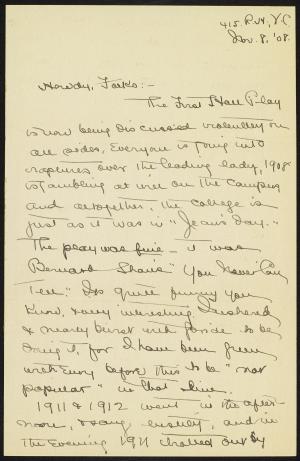 415 R.H., V.C.
Nov. 8, '08.
Howdy, Folks:-
The First Hall Play
is now being discussed violently on
all sides. Everyone is going into
raptures over the leading lady, 1908
is ambling at will on the Campus
and altogether, the College is
just as it was in "Jean's day."
The play was fine - it was
Bernard Shaw's "You Never Can
Tell." It's quite funny you
know, & very interesting. I ushered
& nearly burst with pride to be
doing it, for I have been green
with Envy before this to be "not
popular" in that line.
1911 & 1912 went in the after-
noon, & sang lustily, and in
the Evening 1911 trotted out by